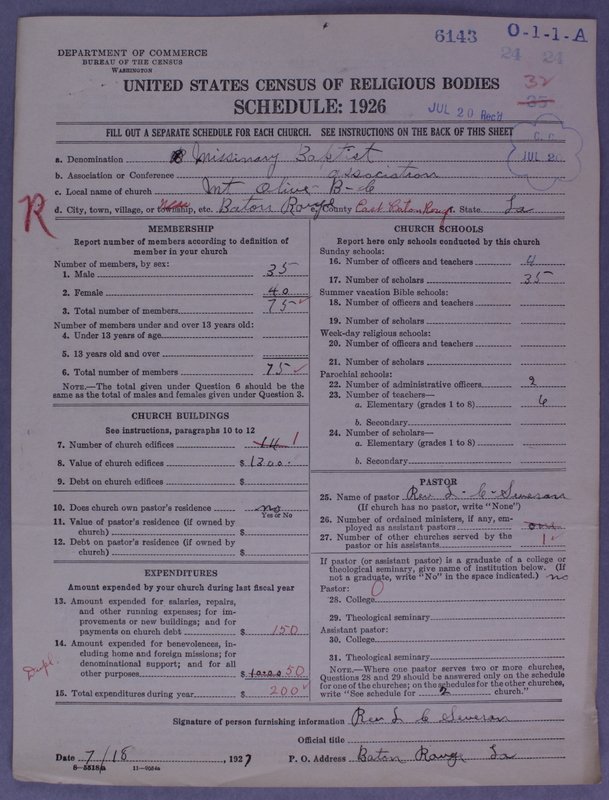 6143 O-1-1-A
24 24
32
35
DEPARTMENT OF COMMERCE
BUREAU OF THE CENSUS
WASHINGTON
UNITED STATES CENSUS OF RELIGIOUS BODIES
SCHEDULE: 1926
JUL 20 Rec'd
FILL OUT A SEPARATE SCHEDULE FOR EACH CHURCH. SEE INSTRUCTIONS ON THE BACK OF THIS SHEET
JUL 20
a. Denomination Missinary Baptist
b. Association or Conference association
c. Local name of church Mt Olive B-C
d. City, town, village, or township, etc. Baton Rouge e. County East Baton Rouge f. State La
R
MEMBERSHIP
Report number of members according to definition of
member in your church
Number of members, by sex:
1. Male 35
2. Female 40
3. Total number of members 75
Number of members under and over 13 years old:
4. Under 13 years of age
5. 13 years old and over
6. Total number of members 75
NOTE.—The total given under Question 6 should be the
same as the total of males and females given under Question 3.
CHURCH BUILDINGS
See instructions, paragraphs 10 to 12
7. Number of church edifices 1
8. Value of church edifices $1300.
9. Debt on church edifices $
10. Does church own pastor's residence no
Yes or No
11. Value of pastor's residence (if owned by
church) $
12. Debt on pastor's residence (if owned by
church) $
EXPENDITURES
Amount expended by your church during last fiscal year
13. Amount expended for salaries, repairs,
and other running expenses; for im-
provements or new buildings; and for
payments on church debt $ 150
14. Amount expended for benevolences, in-
cluding home and foreign missions; for
denominational support; and for all
other purposes $ 50
Dupl.
15. Total expenditures during year $ 200
CHURCH SCHOOLS
Report here only schools conducted by this church
Sunday schools:
16. Number of officers and teachers 4
17. Number of scholars 35
Summer vacation Bible schools:
18. Number of officers and teachers
19. Number of scholars
Week-day religious schools:
20. Number of officers and teachers
21. Number of scholars
Parochial schools:
22. Number of administrative officers 2
23. Number of teachers—
a. Elementary (grades 1 to 8) 6
b. Secondary
24. Number of scholars—
a. Elementary (grades 1 to 8)
b. Secondary
PASTOR
25. Name of pastor Rev L. C. Severson
(If church has no pastor, write "None")
26. Number of ordained ministers, if any, em-
ployed as assistant pastors one
27. Number of other churches served by the
pastor or his assistants 1
If pastor (or assistant pastor) is a graduate of a college or
theological seminary, give name of institution below. (If
not a graduate, write "No" in the space indicated.) no
Pastor: 0
28. College
29. Theological seminary
Assistant pastor:
30. College
31. Theological seminary
NOTE.—Where one pastor serves two or more churches,
Questions 28 and 29 should be answered only on the schedule
for one of the churches; on the schedules for the other churches,
write "See schedule for 2 church."
Signature of person furnishing information Rev L C Severson
Official title
Date 7/18, 1927 P. O. Address Baton Rouge La
8-5518a 11-9584a